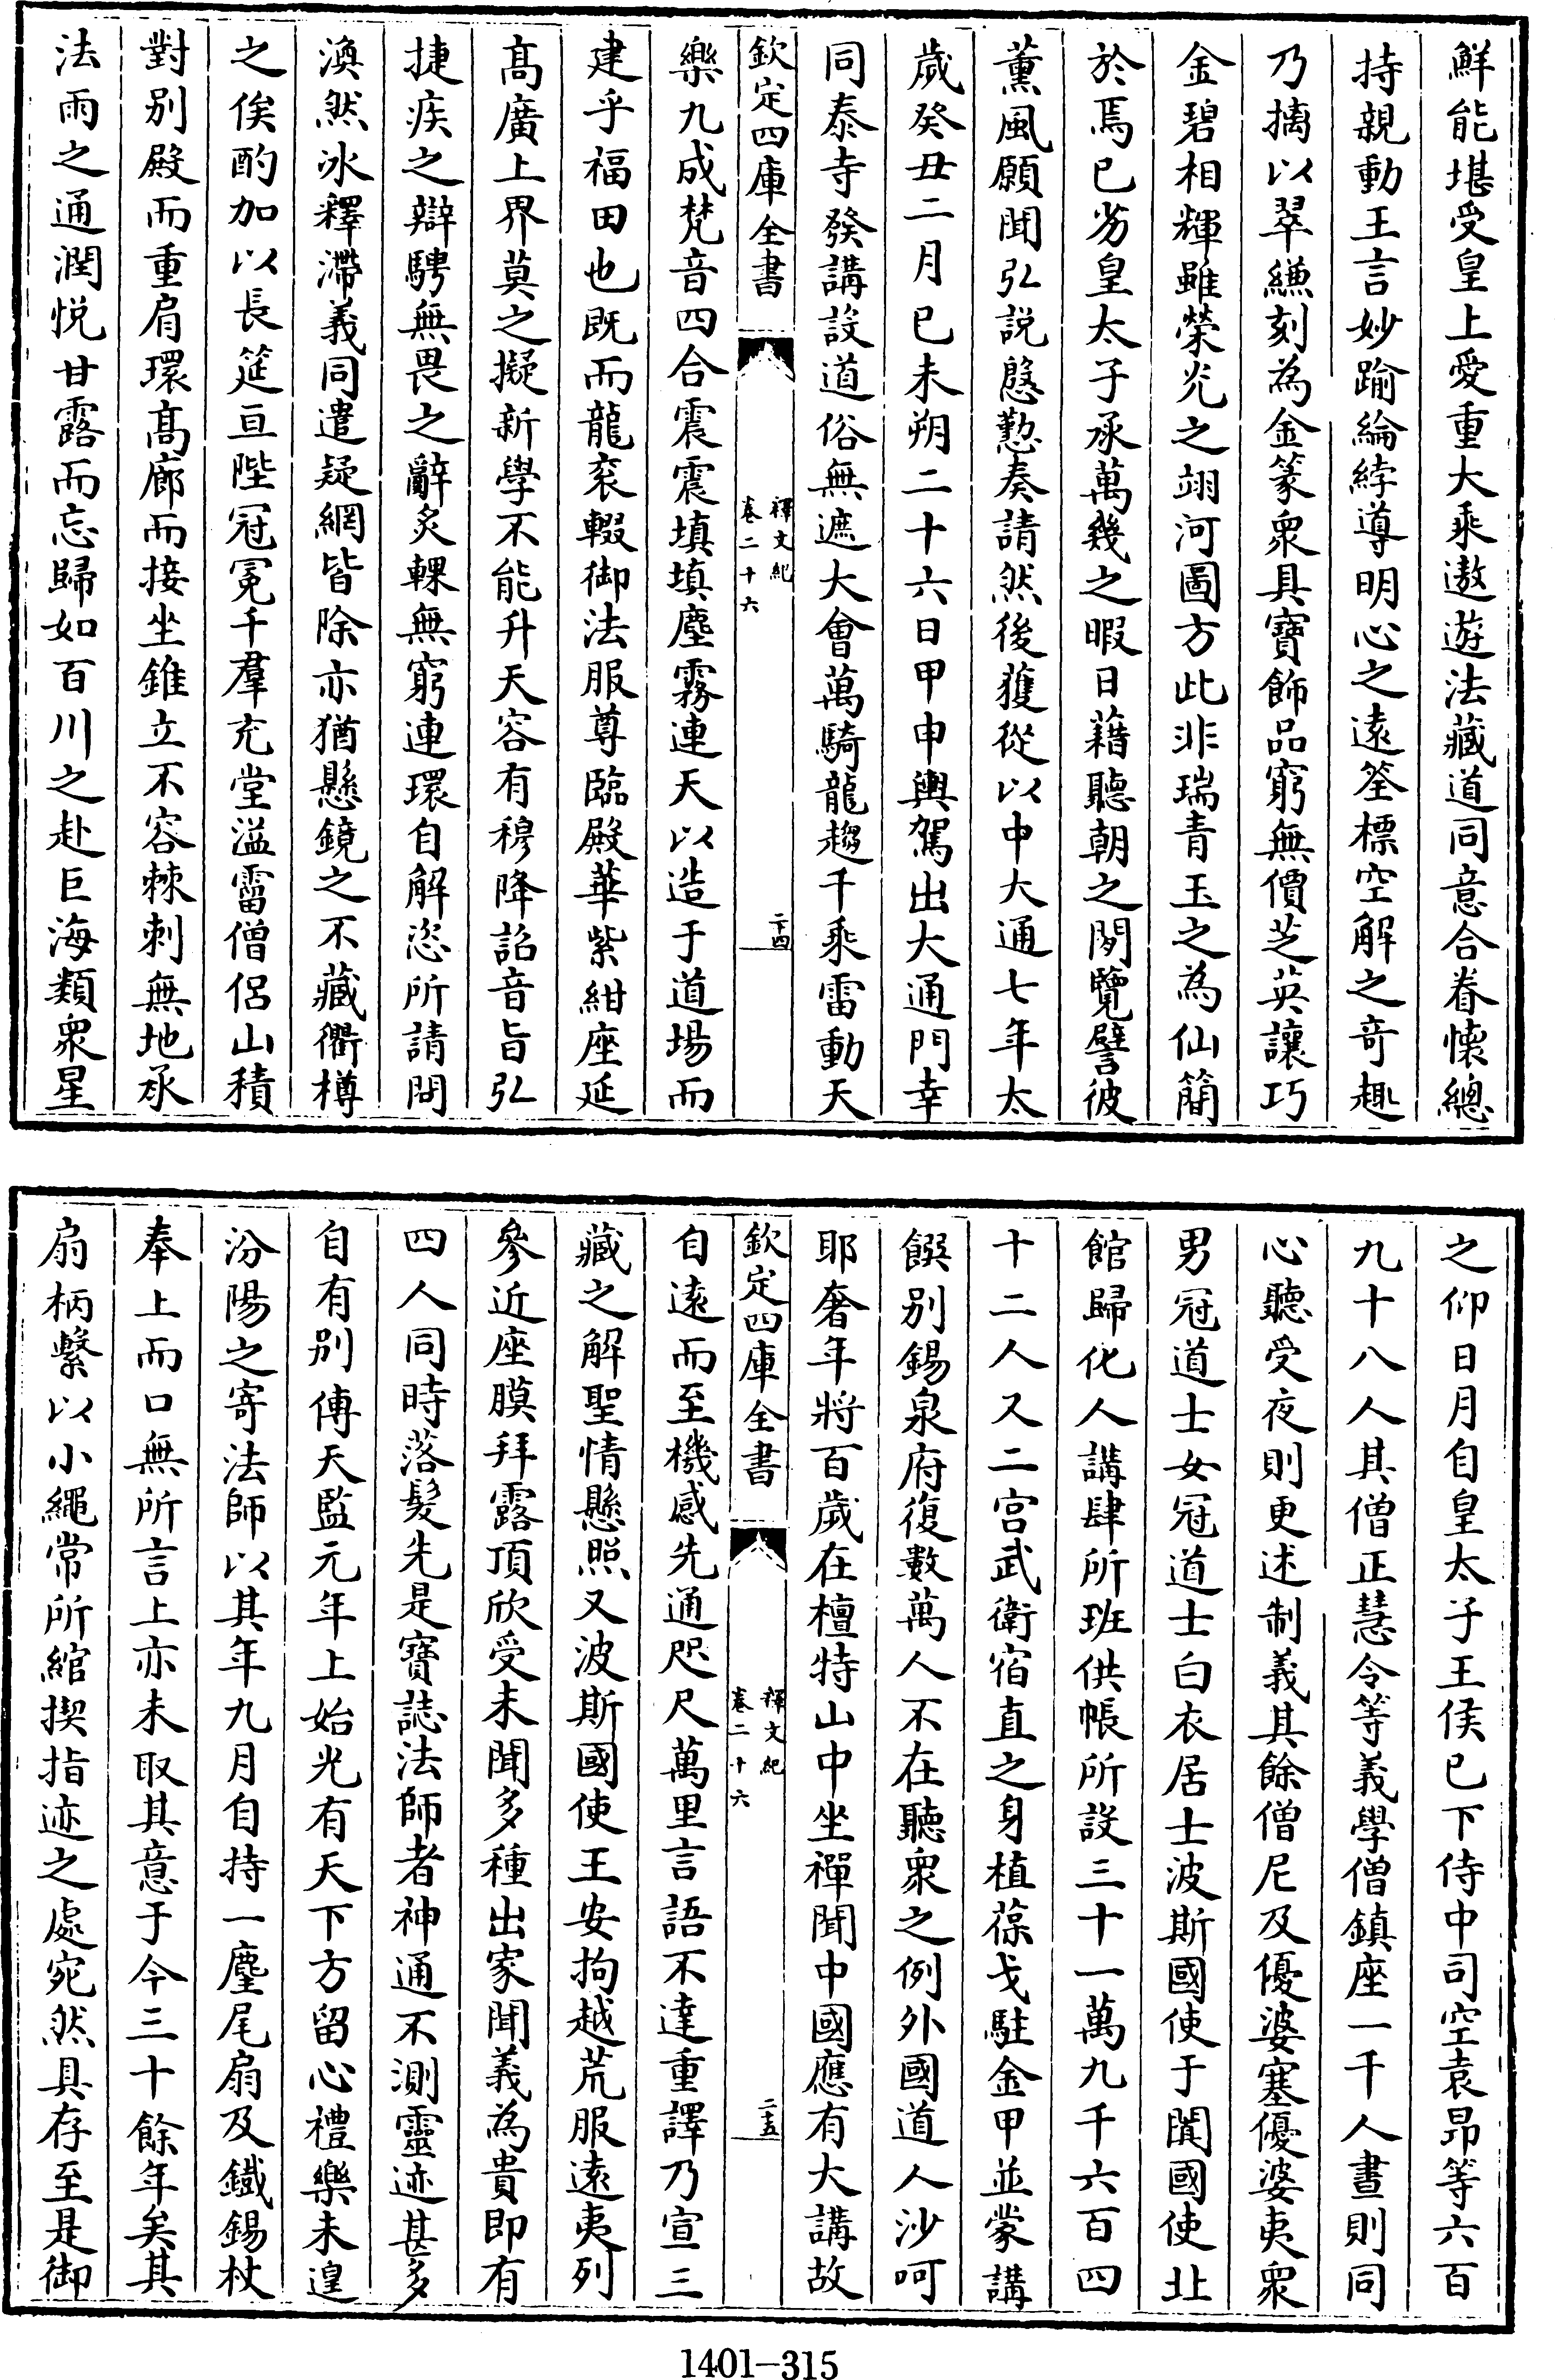 鮮能堪受皇上愛重大乘遨遊法藏道同意合眷懷總
持親動王言妙踰綸綍導明心之遠筌標空解之奇趣
乃摛以翠縑刻為金篆衆具寶飾品窮無價芝英讓巧
金碧相輝雖榮光之翊河圖方此非瑞青玉之為仙簡
於焉已劣皇太子承萬幾之暇日藉聽朝之閒覽譬彼
薫風願聞弘説慇懃奏請然後獲從以中大通七年太
歲癸丑二月已未朔二十六日甲申輿駕出大通門幸
同泰寺發講設道俗無遮大會萬騎龍趨千乘雷動天
欽定四庫全書
釋文紀
卷二十六
二十四
樂九成梵音四合震震填填塵霧連天以造于道場而
建乎福田也既而龍衮輟御法服尊臨殿華紫紺座延
髙廣上界莫之擬新學不能升天容有穆降詔音旨弘
捷疾之辯騁無畏之辭炙輠無窮連環自解恣所請問
渙然冰釋滯義同遣疑網皆除亦猶懸鏡之不藏衢樽
之俟酌加以長筵亘陛冠冕千羣充堂溢霤僧侣山積
對别殿而重肩環髙廊而接坐錐立不容棘刺無地承
法雨之通潤悦甘露而忘歸如百川之赴巨海類衆星
之仰日月自皇太子王侯已下侍中司空袁昂等六百
九十八人其僧正慧令等義學僧鎮座一千人晝則同
心聽受夜則更述制義其餘僧尼及優婆塞優婆夷衆
男冠道士女冠道士白衣居士波斯國使于闐國使北
館歸化人講肆所班供帳所設三十一萬九千六百四
十二人又二宫武衛宿直之身植葆戈駐金甲並蒙講
饌别錫泉府復數萬人不在聽衆之例外國道人沙呵
耶奢年將百歲在檀特山中坐禪聞中國應有大講故
欽定四庫全書
釋文紀
卷二十六
二十五
自遠而至機感先通咫尺萬里言語不達重譯乃宣三
藏之解聖情懸照又波斯國使王安拘越荒服遠夷列
參近座膜拜露頂欣受未聞多種出家聞義為貴即有
四人同時落髪先是寶誌法師者神通不測靈迹甚多
自有别傳天監元年上始光有天下方留心禮樂未遑
汾陽之寄法師以其年九月自持一麈尾扇及鐵錫杖
奉上而口無所言上亦未取其意于今三十餘年矣其
扇柄繫以小繩常所綰揳指迹之處宛然具存至是御
1401-315